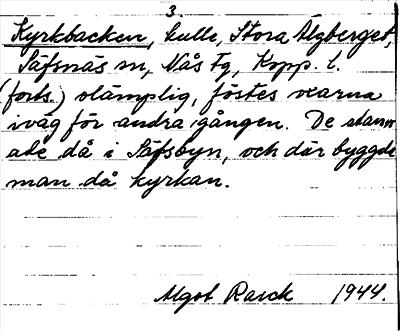 3.
Kyrkbacken, kulle, Stora Älgberget,
Säfsnäs sn, Nås Fg, Kopp. l.
(forts.) olämplig, föstes oxarna
iväg för andra gången. De stann
ade då i Säfsbyn, och där byggde
man då kyrkan.
Algot Rasck 1944.